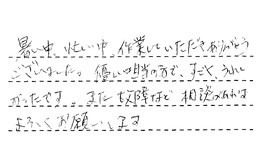 暑い中、忙しい中、作業していただきありがとう
ございました。優しい担当の方で、すごくうれし
かったです。また故障など相談があれば
よろしくお願いします